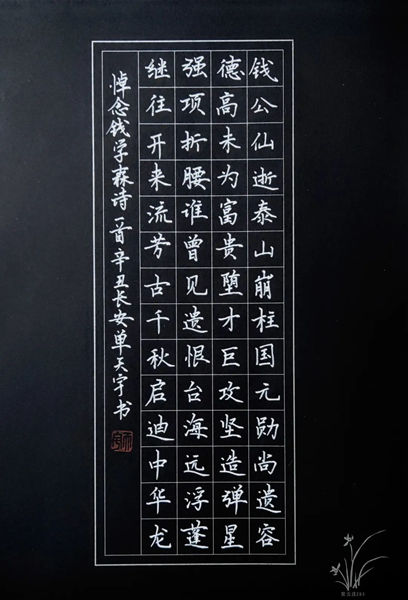 钱公仙逝泰山崩柱国元勋尚遗容
德高未为富贵堕才巨攻坚造弹星
强项折腰谁曾见遗恨台海远浮蓬
继往开来流芳古千秋启迪中华龙
悼念钱学森诗一首辛丑长安单天宇书